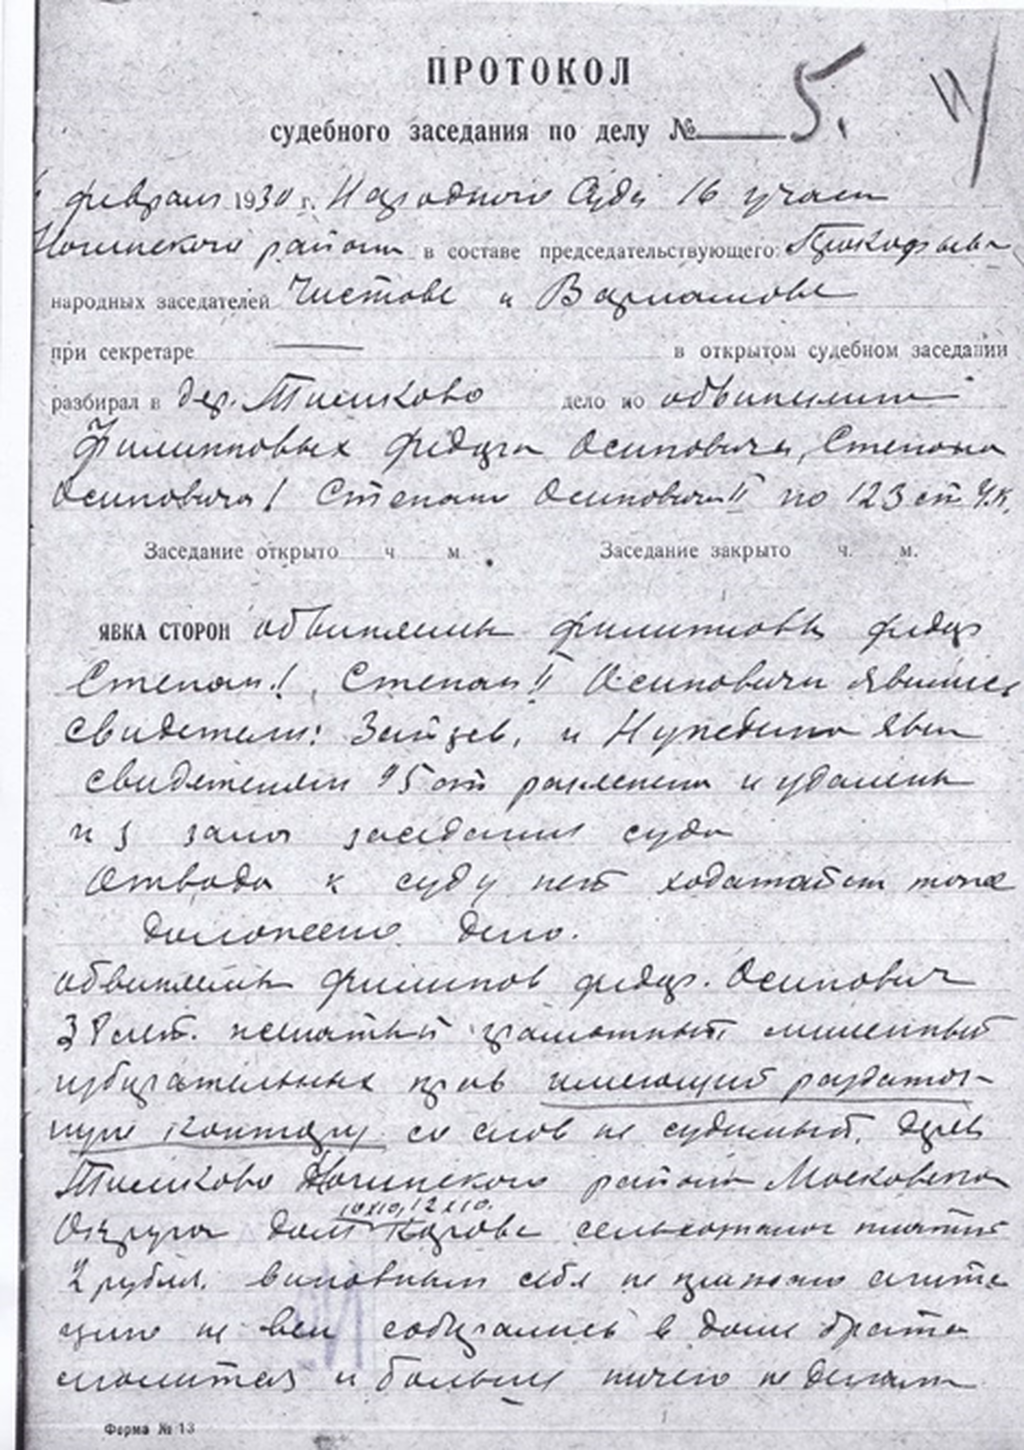 ПРОТОКОЛ
судебного заседания по делу № 5.
февраля 1930 г. Народного Суда 16 участ
Ногинского района в составе председательствующего: Прокофьева
народных заседателей Чистова и Варламова
при секретаре — в открытом судебном заседании
разбирал в дер. Тимково дело по обвинению
Филипповых Федора Осиповича, Степана
Осиповича I Степана Осиповича II по 123 ст У.К.
Заседание открыто ч м. Заседание закрыто ч. м.
ЯВКА СТОРОН обвиняемые Филипповы Федор
Степан I, Степан II Осиповичи явились
свидетели: Зайцев, и Нужедина явил
свидетелям 95 ст разяснена и удалены
из зала заседания суда
Отвода к суду нет ходатайст тоже
доложено дело.
обвиняемый Филипов Федор. Осипович
38 лет. женатый грамотный лишенный
избирательных прав имеющий раздаточ-
ную контору со слов не судимый, дерев
Тимково Ногинского района Московского
Округа дом 10х10, 12х10. Корова сельхозналог платит
2 рубля. виновным себя не признаю агита
цию не вел собирались в доме брата
молитвы и больше ничего не делали
Форма № 13